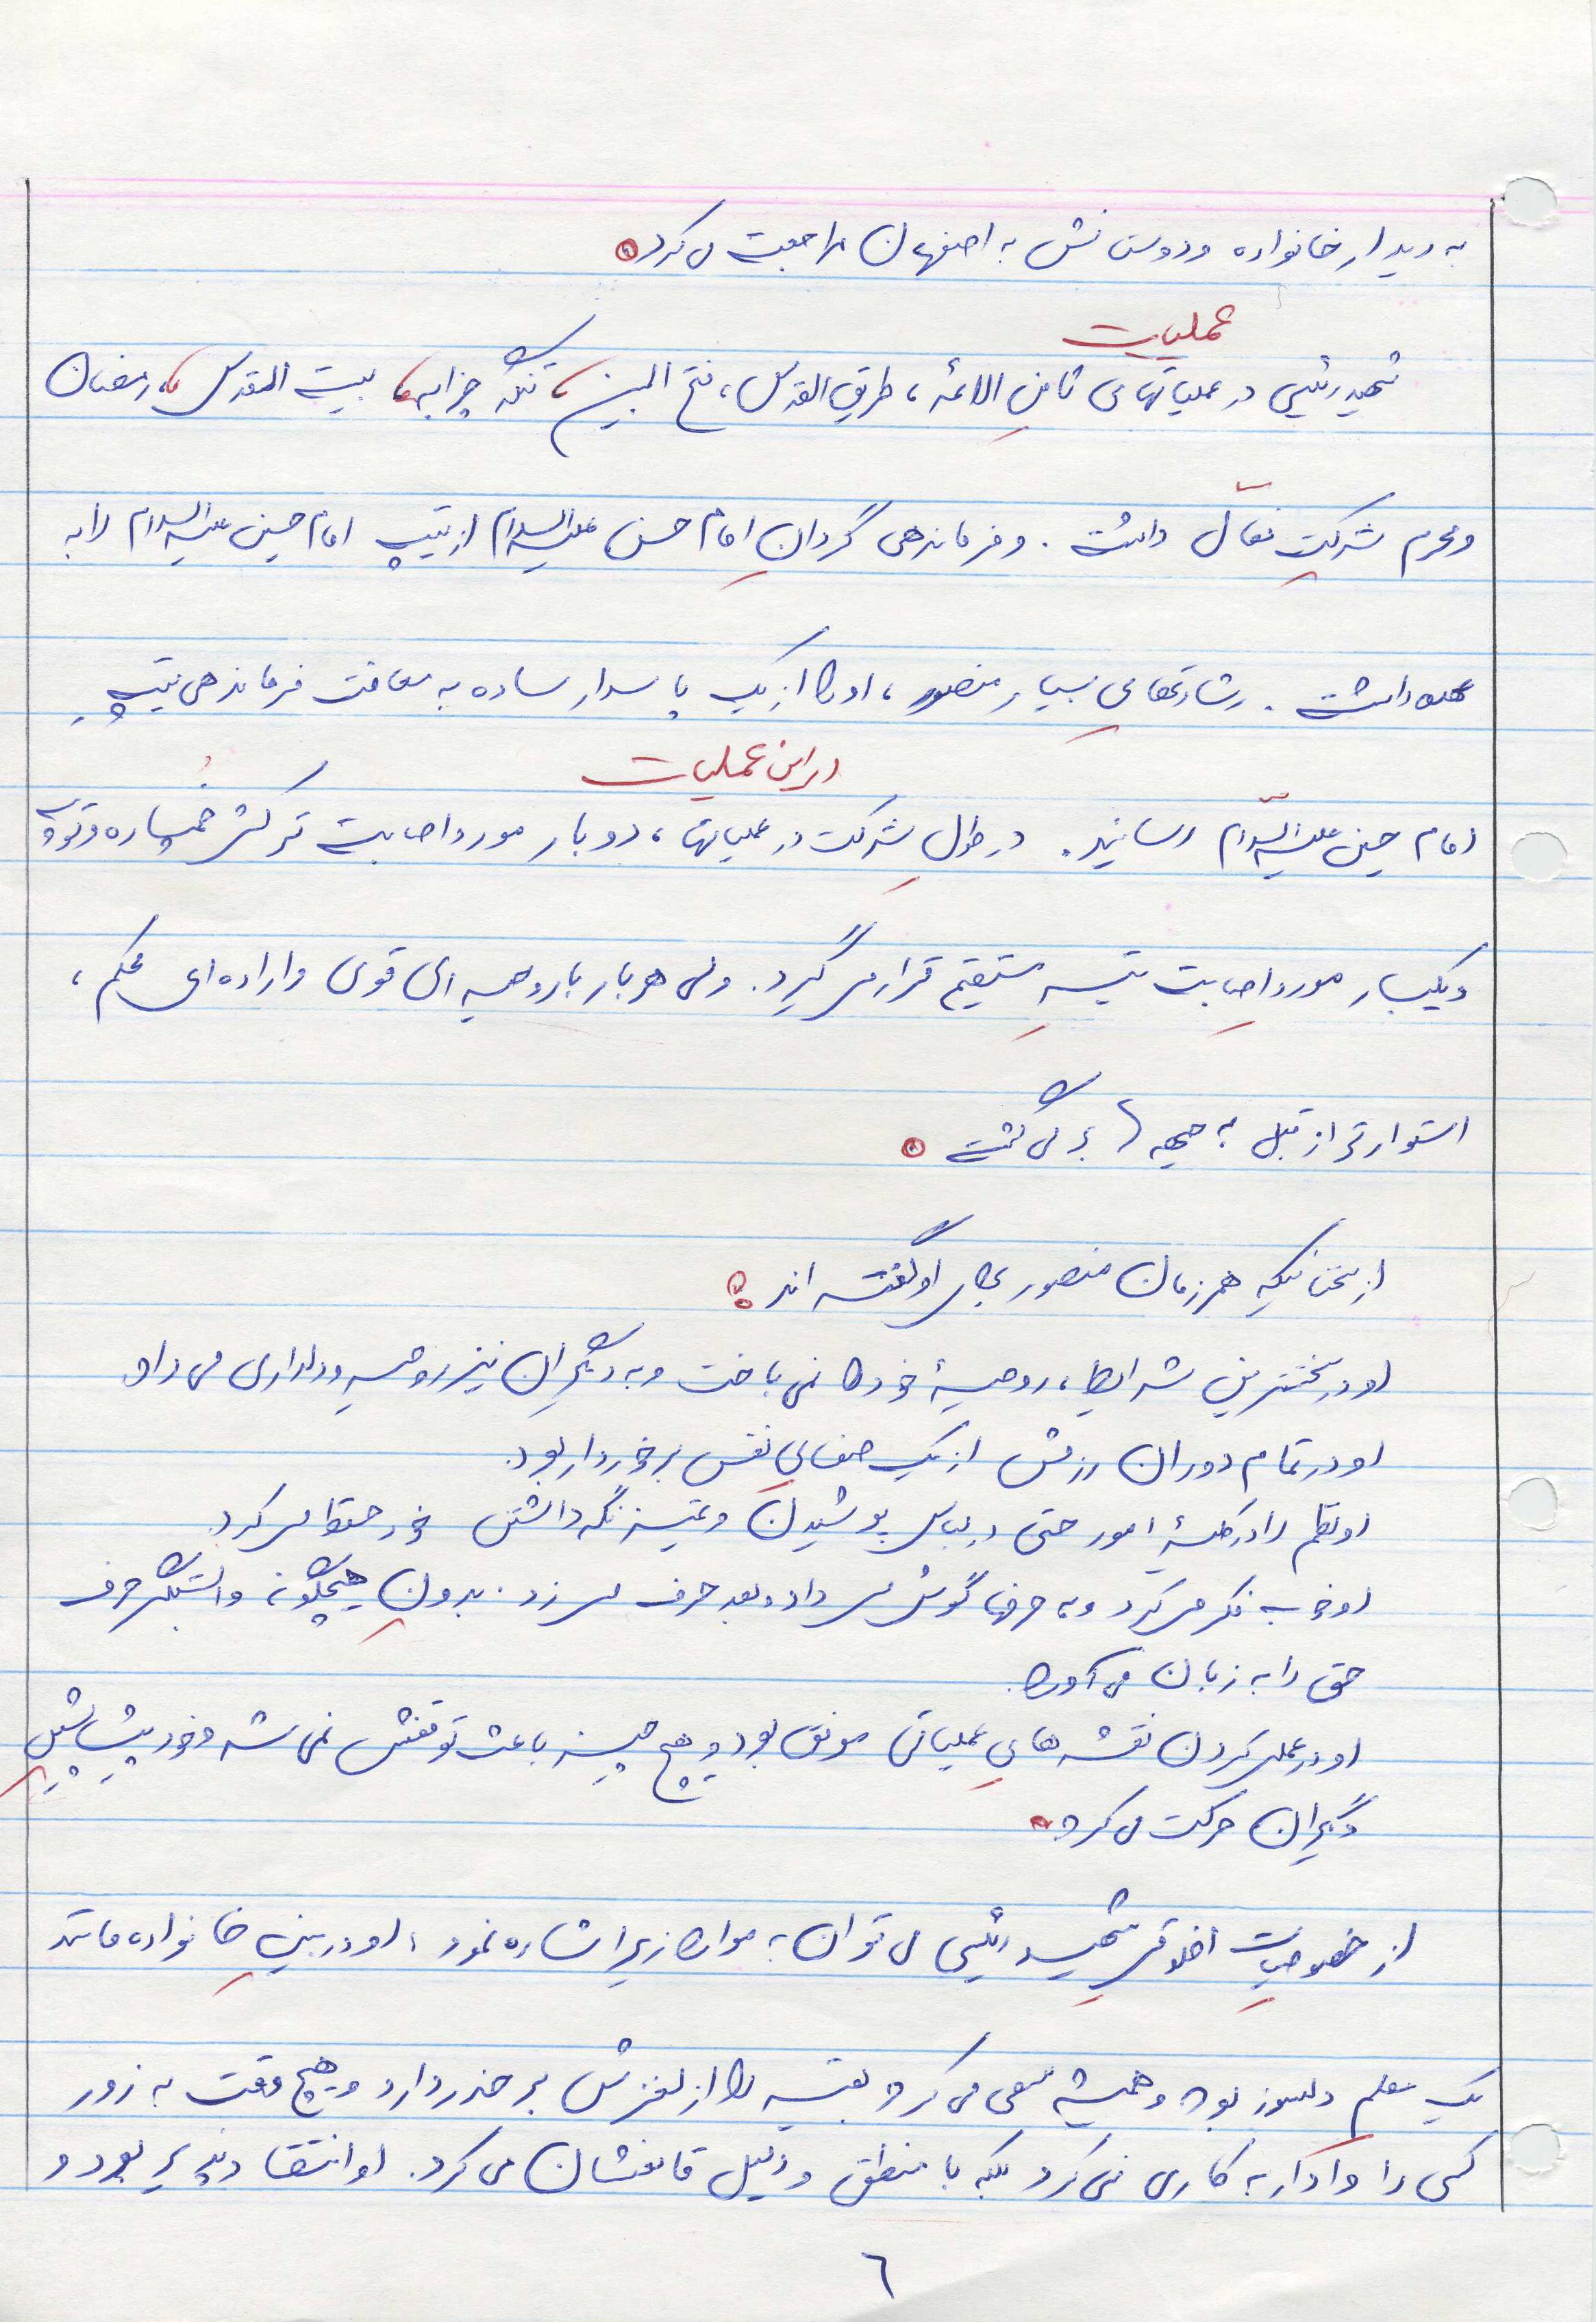 به دیدار خانواده و دوستانش به اصفهان مراجعت می کرد.
عملیات
شهید رئیسی در عملیاتهای ثامن الائمه ، طریق القدس ، فتح المبین ، تنگه چزابه ، بیت المقدس ، رمضان
و محرم شرکتِ فعّال داشت . و فرماندهی گردانِ امام حسن علیه السلام از تیپ امام حسین علیه السلام را به
عهده داشت . رشادتهایِ بسیار منصور ، او را از یک پاسدار ساده به معاونت فرماندهی تیپِ
در این عملیات
امام حسین علیه السّلام رسانید . در طولِ شرکت در عملیاتها ، دو بار مورد اصابت ترکش خُمپاره و توپ
و یکبار مورد اصابتِ تیرِ مستقیم قرار می گیرد . ولی هر بار با روحیه ای قوی و اراده ای محکم ،
استوارتر از قبل به جبهه ها بر می گشت .
از سخنانیکه همرزمان منصور برای او گفته اند :
او در سختترین شرایط ، روحیۀ خود را نمی باخت و به دیگران نیز روحیه و دلداری می داد.
او در تمام دوران رزمش از یک صفایِ نفس برخوردار بود.
او نظم را در کلیۀ امور حتی در لباس پوشیدن و تمیز نگه داشتن خود حفظ می کرد.
او خوب فکر می کرد و به حرفها گوش می داد و بعد حرف می زد . بدونِ هیچگونه وابستگی حرف
حق را به زبان می آورد.
او در عملی کردن نقشه هایِ عملیاتی موفق بود و هیچ چیز باعث توقفش نمی شد و خود پیشاپیشِ
دیگران حرکت می کرد.
از خصوصیاتِ اخلاقی شهید رئیسی می توان به موارد زیر اشاره نمود ، او در بینِ خانواده مانند
یک معلم دلسوز بود و همیشه سعی می کرد بقیه را از لغزش بر حذر دارد و هیچ وقت به زور
کسی را وادار به کاری نمی کرد بلکه با منطق و دلیل قانعشان می کرد. او انتقاد پذیر بود و
٦